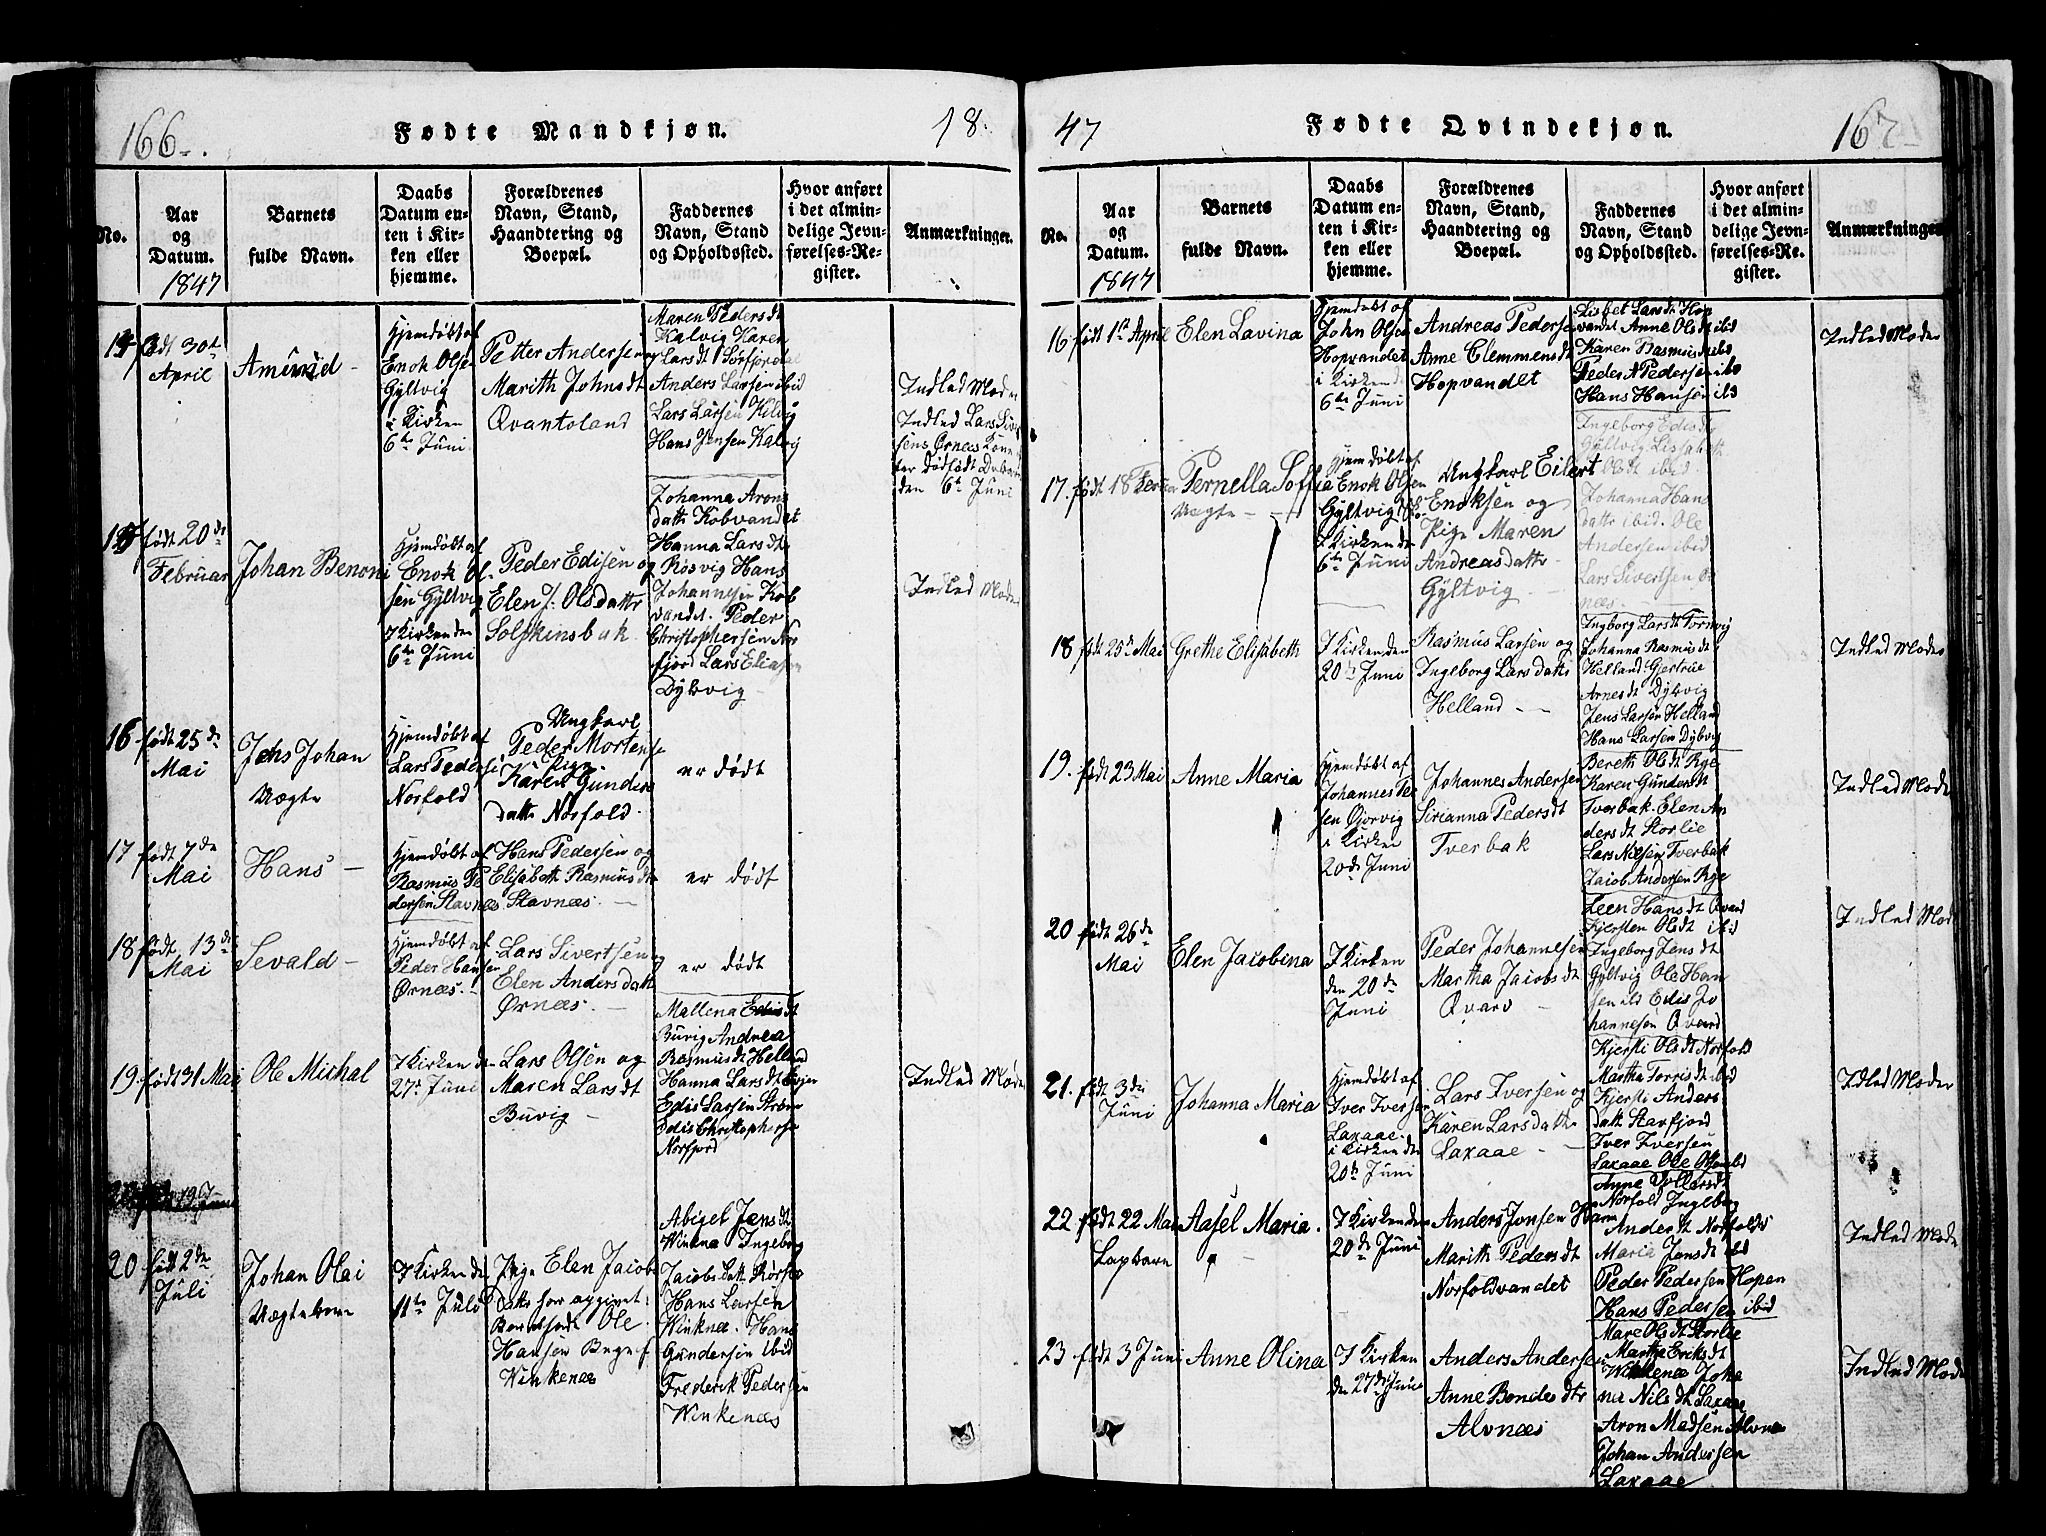 166
Fødte Mandkjøn.
18
No.
Aar
og
Datum.
1847
Barnets
fulde Navn.
Daabs
Datum en-
ten i Kir-
ken eller
hjemme.
Forældrenes
Navn, Stand,
Haandtering og
Boepæl.
Faddernes
Navn, Stand
og Opholdssted.
Hvor anført
i det almin-
delige Jevn-
førelses-Re-
gister.
Anmærkninger.
født 30t
April
Amund
Hjemdøbt af
Enok Olsen
Gyltvig
i Kirken
6te Juni
Petter Andersen
Marith Johnsdt
Qvantoland
Maren Pedersdt
Kalvig Karen
Larsdt Sørfjordal
Anders Larsen ibid
Lars Larsen Kelvig
Hans Jensen Kalvig
Indled Moder
Indled Lars Siv
sens Ørnæs Kone
den 6te Juni
født 20de
Februar
Johan Benoni
Hjemdøbt af
Enok Ol-
sen Gyltvig
I Kirken den
6te Juni
Peder Edisen og
Elen J: Olsdattr
Solskinsbak
Johanna Arons
datt Kobvandet
Hanna Larsdt
Røsvig Hans
Johannesen Kob
vandet. Peder
Christophersen Nor
fjord Lars Eliasen
Dybvig
Indled Moder
16
født 25de
Mai
Jens Johan
Uægte
Hjemdøbt af
Lars Pedersen
Norfold
Ungkarl
Peder Mortensen
Pige
Karen Gunders
datt Norfold
er dødt
17
født 7de
Mai
Hans
Hjemdøbt af
Rasmus Pe
dersen Stavnæs
Hans Pedersen og
Elisabeth Rasmusdt
Stavnæs
er dødt
18
født 13de
Mai
Sevald
Hjemdøbt af
Peder Hansen
Ørnæs
Lars Sivertsen og
Elen Andersdatt
Ørnæs
er dødt
19
født 31 Mai
Ole Michal
I Kirken den
27de Juni
Lars Olsen og
Maren Larsdt
Buvig
Mallena Edisdt
Buvig Andrea
Rasmusdt Helland
Hanna Larsdt Evjen
Edis Larsen Strøm
Edis Christophersen
Norfjord
Indled Moder
20
født 2de
Juli
Johan Olai
Uægte
I Kirken den
11te Juli
Pige Elen Jacobs
datt har opgivet
Barnefader Ole
Hansen
Winkenæs
Abigel Jensdt
Winknæ Ingeborg
Jacobsdatt Rørsvo
Hans Larsen
Winknæ. Hans
Gundersen ibid
Frederik Pedersen
Winkenæs
47
Fødte Qvindekjøn.
167
No.
Aar
og
Datum.
1847
Barnets
fulde Navn.
Daabs
Datum en-
ten i Kir-
ken eller
hjemme.
Forældrenes
Navn, Stand,
Haandtering og
Boepæl.
Faddernes
Navn, Stand
og Opholdssted.
Hvor anført
i det almin-
delige Jevn-
førelses-Re-
gister.
Anmærkninger
16
født 1st April
Elen Lavina
Hjemdøbt af
John Olsen
Hopvandet
i Kirken d
6te Juni
Andreas Pedersen
Anne Clemmensdt
Hopvandet
Lisbet Larsdt Hop
vandet Anne Olsdt ibid
Karen Rasmusdt ibd
Peder N Pedersen ibd
Hans Hansen ibd
Indled Moder
17.
født 18 Feruar
Pernella Soffia
Uægte
Hjemdøbt af
Enok Olsen
Gyltvig
I Kirken den
6te Juni
Ungkarl Eilert
Enoksen og
Pige Maren
Andreasdattr
Gyltvig
Ingeborg Edisdt
Gyltvig Lissabeth
Olsdt ibid.
Johanna Hans
datt ibid. Ole
Andersen ibid
Lars Sivertsen Ør
næs
18
født 25de Mai
Grethe Elisabeth
I Kirken den
20de Juni
Rasmus Larsen og
Ingeborg Larsdatt
Helland
Ingborg Larsdt Tornvig
Johanna Rasmusdt
Helland Gjertrue
Arnesdt Dybvig
Jens Larsen Helland
Hans Larsen Dybvig
Indled Moder
19.
født 23 Mai
Anne Maria
Hjemdøbt af
Johannes Pe
sen Gjørvig
i Kirken
20de Juni
Johannes Andersen
Sirianna Pedersdt
Tverbak
Bereth Olsdt Rye
Karen Gundersdt
Tverbak Elen An
dersdt Storlie
Lars Nilsen Tverbak
Jacob Andersen Rye
Indled Mode
20
født 26de
Mai
Elen Jacobina
I Kirken
den 20de
Juni
Peder Johannesen
Martha Jacobsdt
Qvarv
Leen Hansdt Qvarv
Kjersten Olsdt ibid
Ingeborg Jensdt
Gyltvig Ole Han
sen ibd Edis Jo
hannesen Qvarv
Indled Mod
21.
født 3de
Juni
Johanna Maria
Hjemdøbt af
Iver Iversen
Laxaae
i Kirken den
20de Juni
Lars Iversen og
Karen Larsdatt
Laxaae
Kjersti Olsdt Norfold
Martha Torrisdt ibid
Kjersti Anders
datt Starfjord
Iver Iversen
Laxaae Ole Olsen ibd
Idled Moder
22
født 22 Mai
Lapbarn
Aasel Maria
I Kirken den
20de Juni
Anders Jonsen
Marith Pedersdt
Norfoldvandet
Norfold Ingeborg
Andersdt Norfold
Maria Jensdt ibd
Peder Pedersen Hopen
Hans Pedersen ibid
Indled Mode
23
født 3 Juni
Anne Olina
I Kirken
den 27de Juni
Anders Andersen
Anne Bendesdtr
Alvnæs
Mare Olsdt Storlie
Martha Eriksdt
Winkenæs Joha
na Nilsdt Laxaae
Aron Madsen Alvnæs
Johan Andersen
Laxaae
Indled Mode